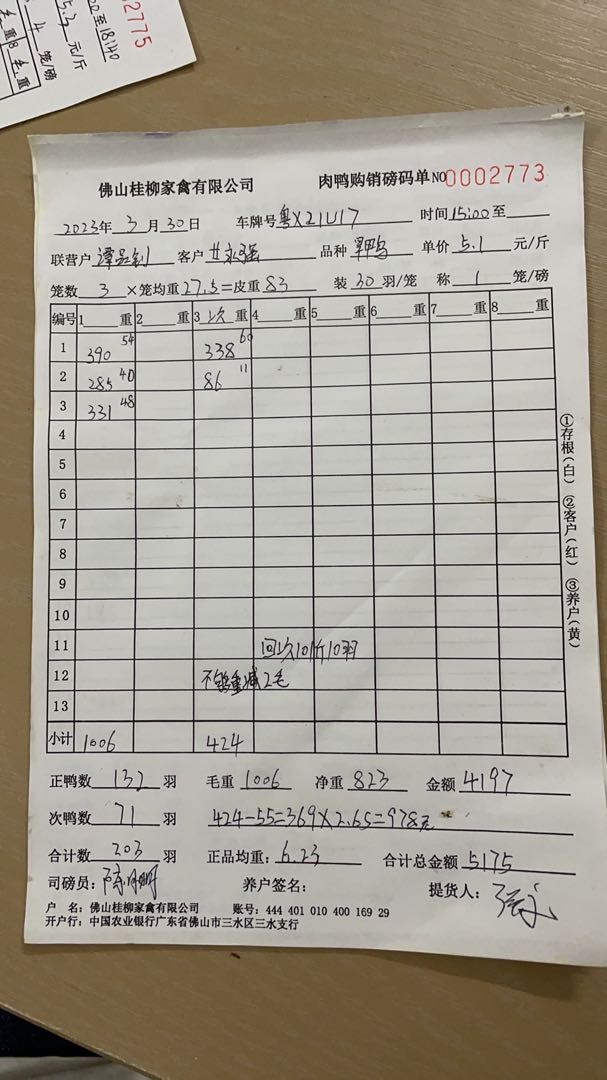 2775
00至18:40
5.3 元/斤
4 笼/磅
重 8 重
佛山桂柳家禽有限公司 肉鸭购销磅码单 NO 0002773
2023年 3 月 30 日 车牌号 粤X21U17 时间 15:00 至
联营户 客户 永强 品种 鸭 单价 5.1 元/斤
笼数 3 ×笼均重 27.5 =皮重 83 装 30 羽/笼 称 1 笼/磅
编号 1 重 2 重 3 次 重 4 重 5 重 6 重 7 重 8 重
1 390 54 338 60
2 285 40 86 11
3 331 48
4
5
6
7
8
9
10
11 回次10斤10羽
12 减2毛
13
小计 1006 424
正鸭数 132 羽 毛重 1006 净重 823 金额 4197
次鸭数 71 羽 424-55=369×2.65=978元
合计数 203 羽 正品均重: 6.23 合计总金额 5175
司磅员: 养户签名: 提货人:
户 名: 佛山桂柳家禽有限公司 账号: 444 401 010 400 169 29
开户行: 中国农业银行广东省佛山市三水区三水支行
①存根(白) ②客户(红) ③养户(黄)